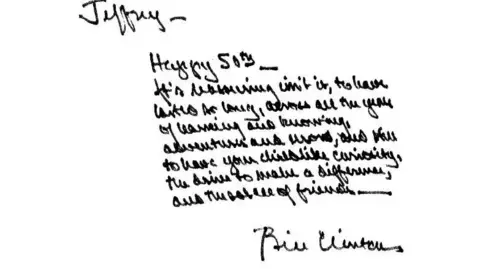 Jeffrey —
Happy 50th —
It's reassuring isn't it, to have
lasted as long, across all the years
of learning and knowing,
adventures and more, and still
to have your childlike curiosity,
the drive to make a difference,
and the solace of friends —
Bill Clinton